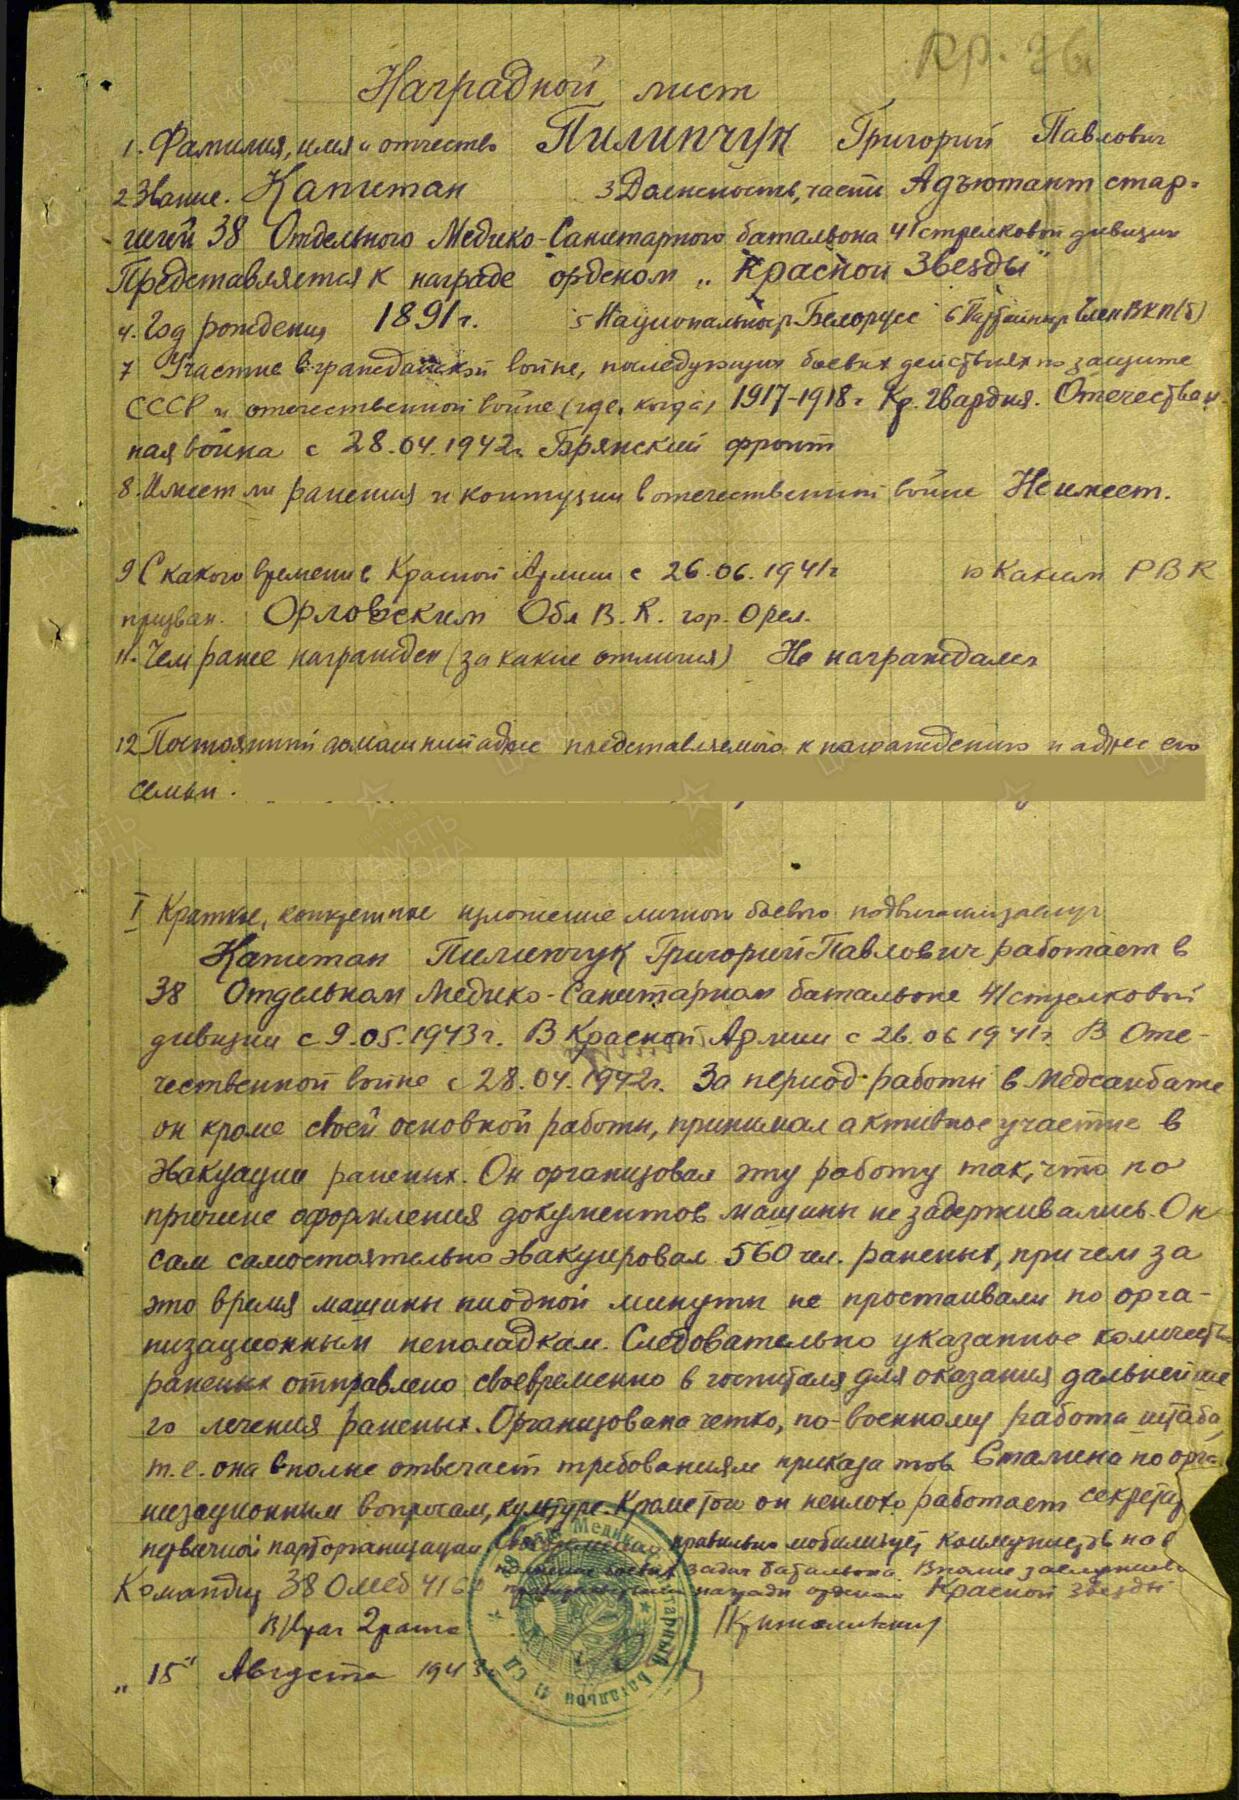 Кр. 36
Наградной лист
1. Фамилия, имя и отчество Пилипчук Григорий Павлович
2 Звание. Капитан 3 Должность, часть Адъютант стар-
ший 38 Отдельного Медико-Санитарного батальона 41 стрелковой дивизии
Представляется к награде орденом „Красной Звезды"
4. Год рождения 1891 г. 5 Национальность Белорусс 6 Партийн Член ВКП(б)
7 Участие в гражданской войне, последующих боевых действиях по защите
СССР и отечественной войне (где, когда) 1917-1918 г Кр. Гвардия. Отечествен-
ная война с 28.04.1942 г Брянский фронт
8. Имеет ли ранения и контузии в отечественной войне Не имеет.
9 С какого времени в Красной Армии с 26.06.1941 г 10 Каким РВК
призван. Орловским Обл В.К. гор. Орел.
11. Чем ранее награжден (за какие отличия) Не награждался
12 Постоянный домашний адрес представляемого к награждению и адрес его
семьи.
I Краткое, конкретное изложение личного боевого подвига или заслуг
Капитан Пилипчук Григорий Павлович работает в
38 Отдельном Медико-Санитарном батальоне 41 стрелковой
дивизии с 9.05.1943 г. В Красной Армии с 26.06 1941 г. В Оте-
чественной войне с 28.04.1942 г. За период работы в медсанбате
он кроме своей основной работы, принимал активное участие в
эвакуации раненых. Он организовал эту работу так, что по
причине оформления документов машины не задерживались. Он
сам самостоятельно эвакуировал 560 чел. раненых, причем за
это время машины ни одной минуты не простаивали по орга-
низационным неполадкам. Следовательно указанное количеств
раненых отправлено своевременно в госпиталя для оказания дальнейше
го лечения раненых. Организована четко, по-военному работа штаба,
т.е. она вполне отвечает требованиям приказа тов Сталина по орга
низационным вопросам, культуре. Кроме того он неплохо работает секретар
первичной парторганизации правильно мобилизует коммунистов на в
боевых задач батальона. Вполне заслужива
награды орденом Красной Звезды
Командир 38 ОМСБ 41 СД
В/Врач 2 ранга
„15" Августа 1943 г.
38 Отд. Медико-Санитарный Батальон 41 СД